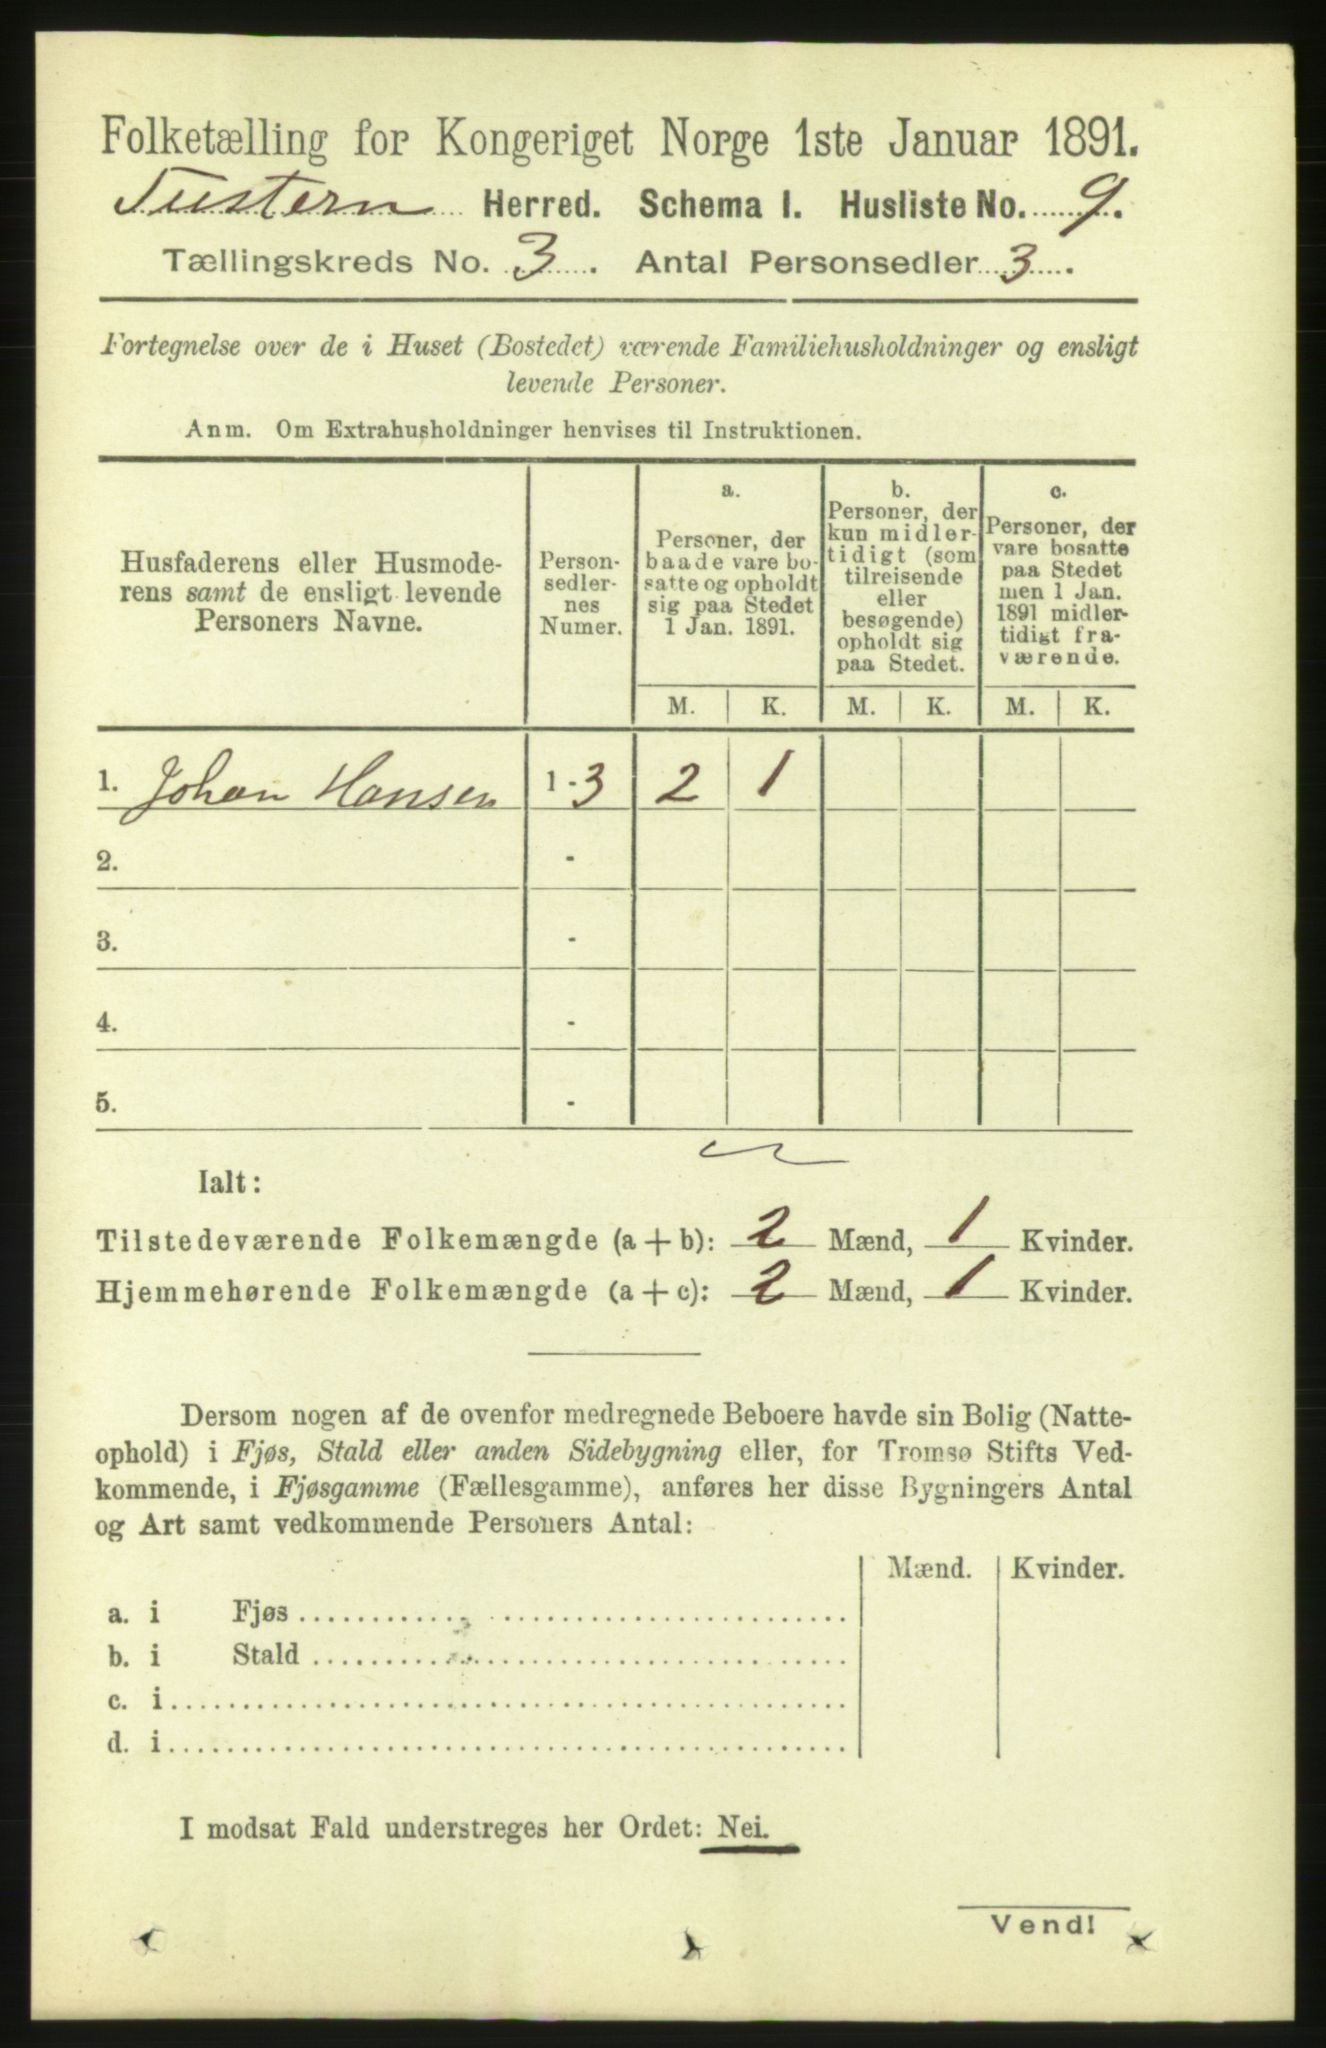 Folketælling for Kongeriget Norge 1ste Januar 1891.
Tustern Herred. Schema I. Husliste No. 9.
Tællingskreds No. 3. Antal Personsedler 3.
Fortegnelse over de i Huset (Bostedet) værende Familiehusholdninger og ensligt
levende Personer.
Anm. Om Extrahusholdninger henvises til Instruktionen.
Husfaderens eller Husmode-
rens samt de ensligt levende
Personers Navne.
Person-
sedler-
nes
Numer.
a.
Personer, der
baade vare bo-
satte og opholdt
sig paa Stedet
1 Jan. 1891.
b.
Personer, der
kun midler-
tidigt (som
tilreisende
eller
besøgende)
opholdt sig
paa Stedet.
c.
Personer, der
vare bosatte
paa Stedet
men 1 Jan.
1891 midler-
tidigt fra-
værende.
M. K. M. K. M. K.
1. Johan Hansen 1-3 2 1
2. -
3. -
4. -
5. -
Ialt:
Tilstedeværende Folkemængde (a+b): 2 Mænd, 1 Kvinder.
Hjemmehørende Folkemængde (a+c): 2 Mænd, 1 Kvinder.
Dersom nogen af de ovenfor medregnede Beboere havde sin Bolig (Natte-
ophold) i Fjøs, Stald eller anden Sidebygning eller, for Tromsø Stifts Ved-
kommende, i Fjøsgamme (Fællesgamme), anføres her disse Bygningers Antal
og Art samt vedkommende Personers Antal:
Mænd. Kvinder.
a. i Fjøs
b. i Stald
c. i
d. i
I modsat Fald understreges her Ordet: Nei.
Vend!